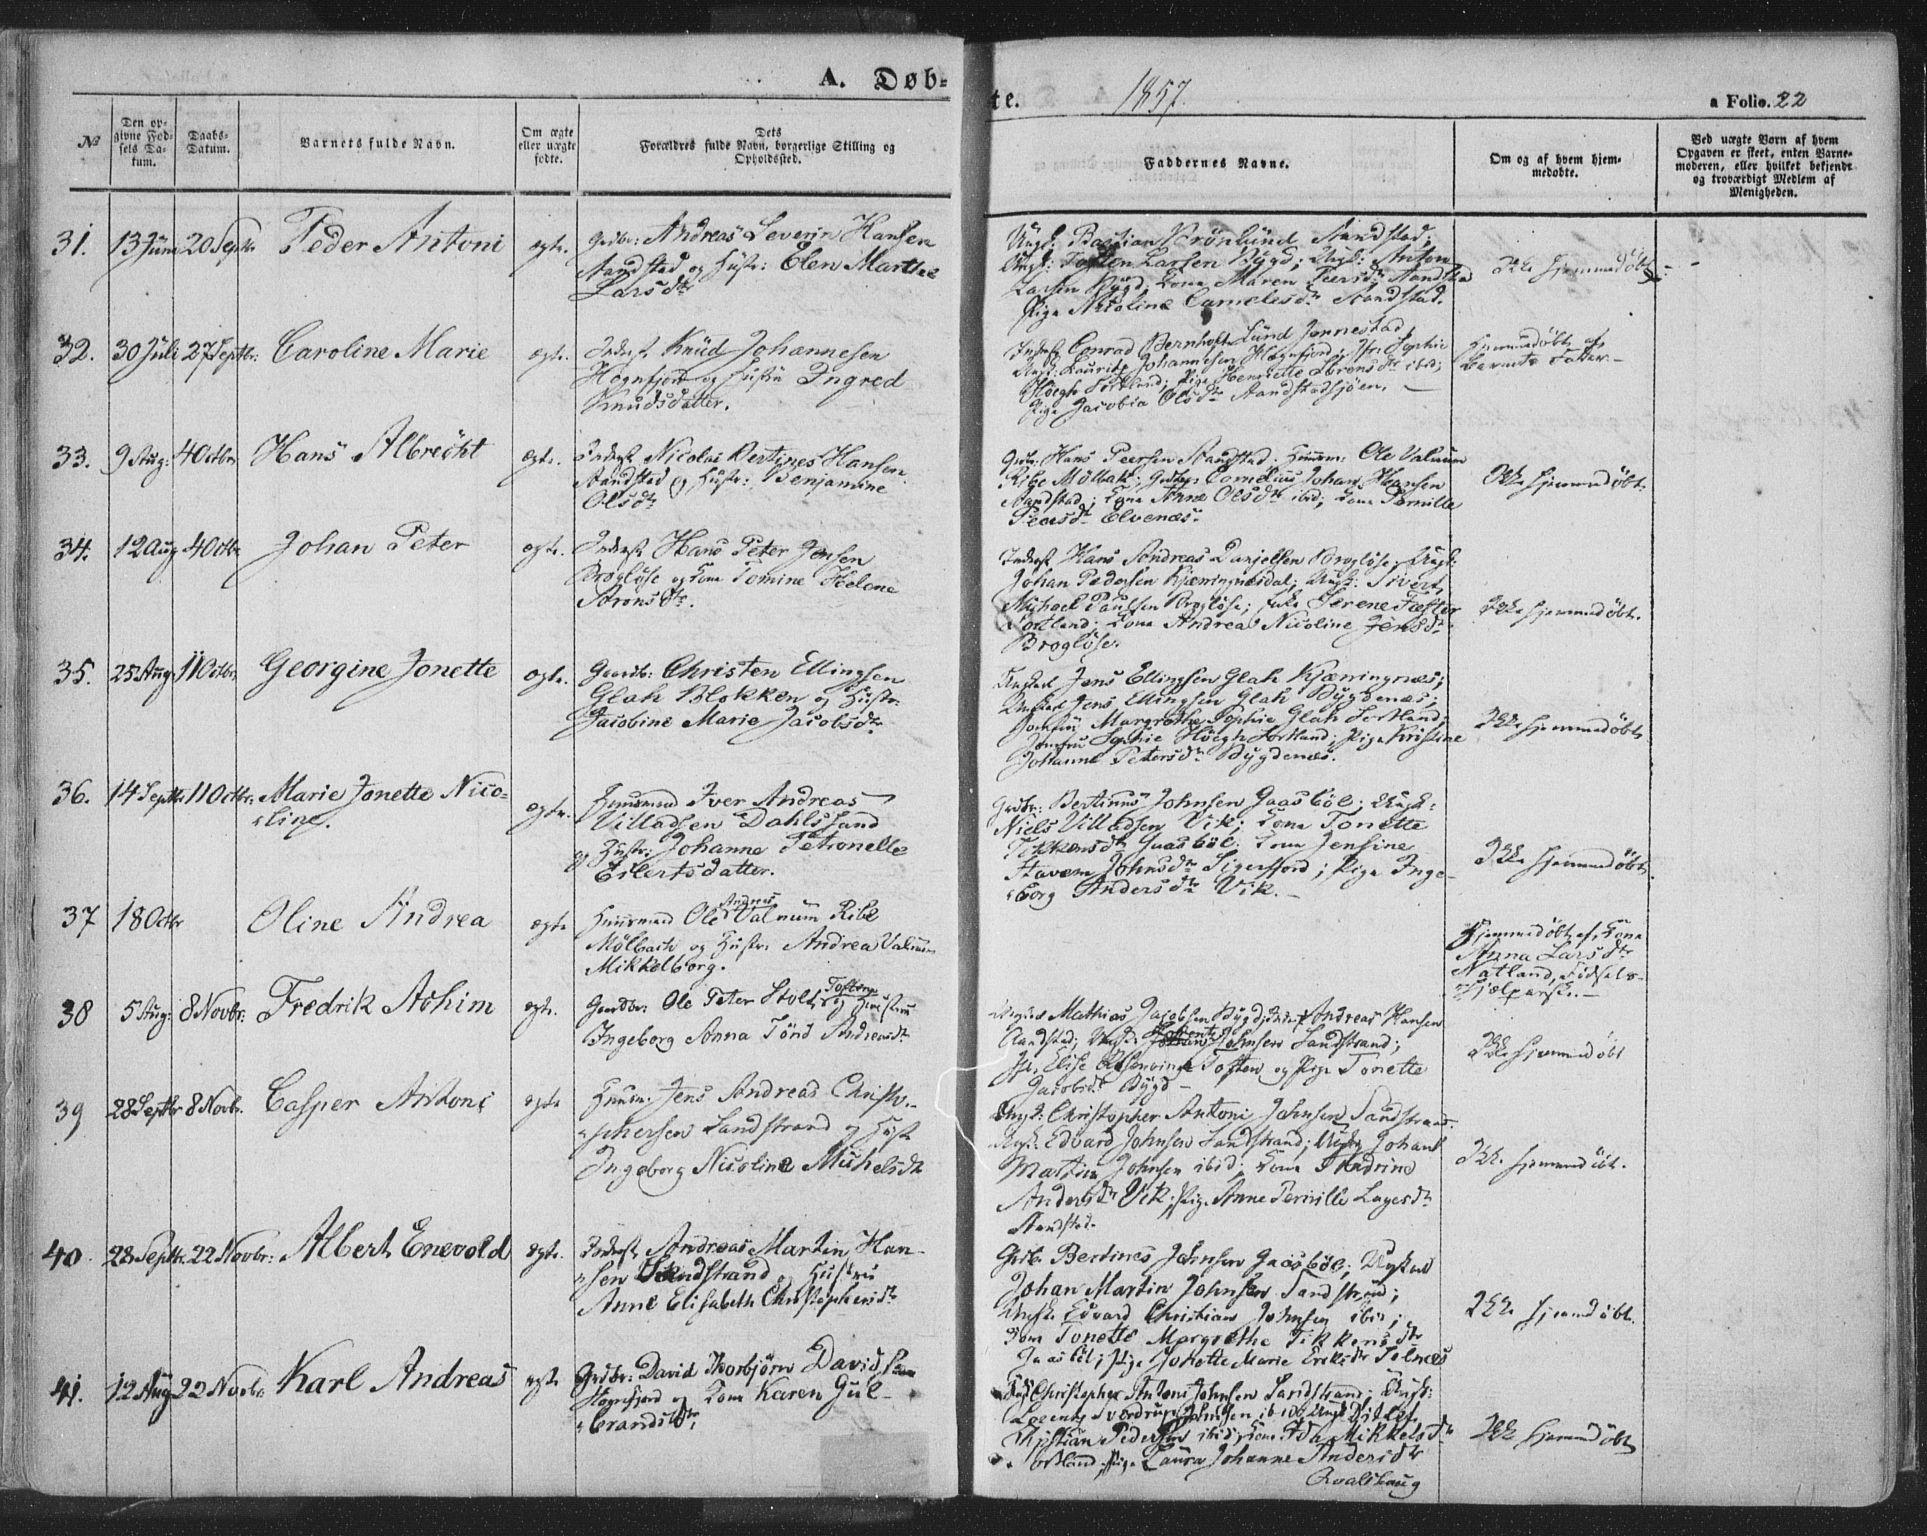 A. Døb-
te. 1857. a Folio. 22
№
Den op-
givne Fød-
sels Da-
tum.
Daabs-
Datum.
Barnets fulde Navn.
Om ægte
eller uægte
fødte.
Dets
Forældres fulde Navn, borgerlige Stilling og
Opholdssted.
Faddernes Navne.
Om og af hvem hjem-
medøbte.
Ved uægte Børn af hvem
Opgaven er skeet, enten Barne-
moderen, eller hvilket bekjendt
og troværdigt Medlem af
Menigheden.
31. 13 Juni 20 Septbr Peder Antoni ægte.
Grdbr: Andreas Severin Hansen
Sandstad og Hustr: Elen Marthe
Larsdtr
Ungk: Bastian Krönlund Sandstad;
Ungk: Larsen Bygd; Ungk: Anton
Larsen Bygd; Kone Maren Peersdtr Sandstad
Pige Nicoline Sandstad.
Ikke hjemmedöbt.
32. 30 Juli 27 Septbr: Caroline Marie ægte.
Inderst Knud Johannesen
Hognfjord og Hustru Ingred
Knudsdatter.
Inderst Conrad Bernhoft Lund Jennestad;
Ungk: Lauritz Johannesen Hognfjord; Jfr Sophie
Höegh Sortland; Pige Henriette Sörensdtr ibid;
Pige Jacobia Olsdtr Sandstadsjöen.
Hjemmedöbt af
Barnets Fader.
33. 9 Aug: 4 Octbr Hans Albrecht ægte.
Inderst Nicolai Bertines Hansen
Sandstad og Hustr: Benjamine
Olsdtr
Grdbr: Hans Peersen Sandstad. Huusm: Ole Valnum
Ribe Mölbak; Cornelius Johan Hansen
Sandstad; Kone Anne Olsdtr ibid; Kone Pernille
Peersdtr Elvenæs.
Ikke hjemmedöbt.
34. 12 Aug 4 Octbr Johan Peter ægte.
Inderst Hans Peter Jensen
Brogløse og Kone Tomine Helene
Aronsdtr.
Inderst Hans Andreas Danjelsen Broglöse; Ungk:
Johan Pedersen Kjærringnæsdal; Ungk: Sivert
Michael Paulsen Broglöse; Enke Serene
Sortland; Kone Andrea Nicoline Jensdtr
Broglöse.
Ikke hjemmedöbt.
35. 25 Aug. 11 Octbr. Georgine Jonette ægte.
Gaardbr: Christen Ellingsen
Glah Blokken og Hustr:
Jacobine Marie Jacobsdtr
Ungkarl Jens Ellingsen Glah Kjærringnæs;
Ungkarl Jens Ellingsen Glah Bygdenæs;
Jomfru Margrethe Sophie Glah Sortland;
Jomfru Sophie Höegh Sortland; Pige Kristine
Johanna Petersdtr Bygdenæs.
Ikke hjemmedöbt
36. 14 Septbr 11 Octbr: Marie Jonette Nico-
line. ægte.
Huusmand Iver Andreas
Villadsen Dahlssand
og Hustr: Johanna Petronelle
Eilertsdatter.
Grdbr: Bertinus Johnsen Gaasböl; Ungk:
Niels Villadsen Vik; Kone Tonette
Tikkensdtr Gaasböl; Kone Jensine
Johnsdtr Sigerfjord; Pige Inge-
borg Andersdtr Vik.
Ikke hjemmedöbt.
37 18 Octbr Oline Andrea ægte
Huusmand Ole Andreas Valnum Ribe
Mølbach og Hustr: Andrea Valnum
Mikkelborg.
Hjemmedöbt af Kone
Anna Larsdtr
Natland, Födsels-
hjelperske.
38 5 Aug: 8 Novbr: Fredrik Achim ægte.
Gaardbr: Ole Peter Holst Tofteng og Hustru
Ingeborg Anna Tönd Andersdtr
Mathias Jacobsen Bygd; Andreas Hansen
Sandstad; Ungk: Johnsen Sandstrand;
Jfr. Elise Toften og Pige Tonette
Jacobsdtr Bygd
Ikke hjemmedöbt
39 28 Septbr 8 Novbr. Casper Antoni ægte
Huusm. Jens Andreas Christo-
phersen Sandstrand og Hustr
Ingeborg Nicoline Michelsdtr
Ungk: Christopher Antoni Johnsen Sandstrand.
Ungk. Edvard Johnsen Sandstrand; Ungk Johans
Martin Johnsen ibid; Kone Andrine
Andersdtr Vik; Pige Anne Lagesdtr
Sandstad.
Ikke hjemmedöbt.
40. 28 Septbr. 22 Novbr: Albert Enevold ægte.
Inderst Andreas Martin Han-
sen Sandstrand og Hustru
Anne Elisabeth Christophersdtr
Grdb. Bertines Johnsen Gaasböl; Ungkarl
Johan Martin Johnsen Sandstrand;
Ungk. Edvard Christian Johnsen ibid;
Kone Tonette Margrethe Tikkensdtr
Gaasböl; Pige Marie Eriksdtr Solnæs
Ikke hjemmedöbt.
41. 12 Aug 22 Novbr Karl Andreas ægte.
Grdbr: David Thorbjörn Davidsen
Hognfjord og Kone Karen Gul-
brandsdtr
Ungk Christopher Antoni Johnsen Sandstrand; Ungk:
Lorents Sverdrup Johnsen ibid; Ungk Ditlef
Christian Pedersen ibid; Kone Ida Mikkelsdtr
Sortland; Pige Laura Johanne Andersdtr
Kvalshaug
Ikke hjemmedöbt